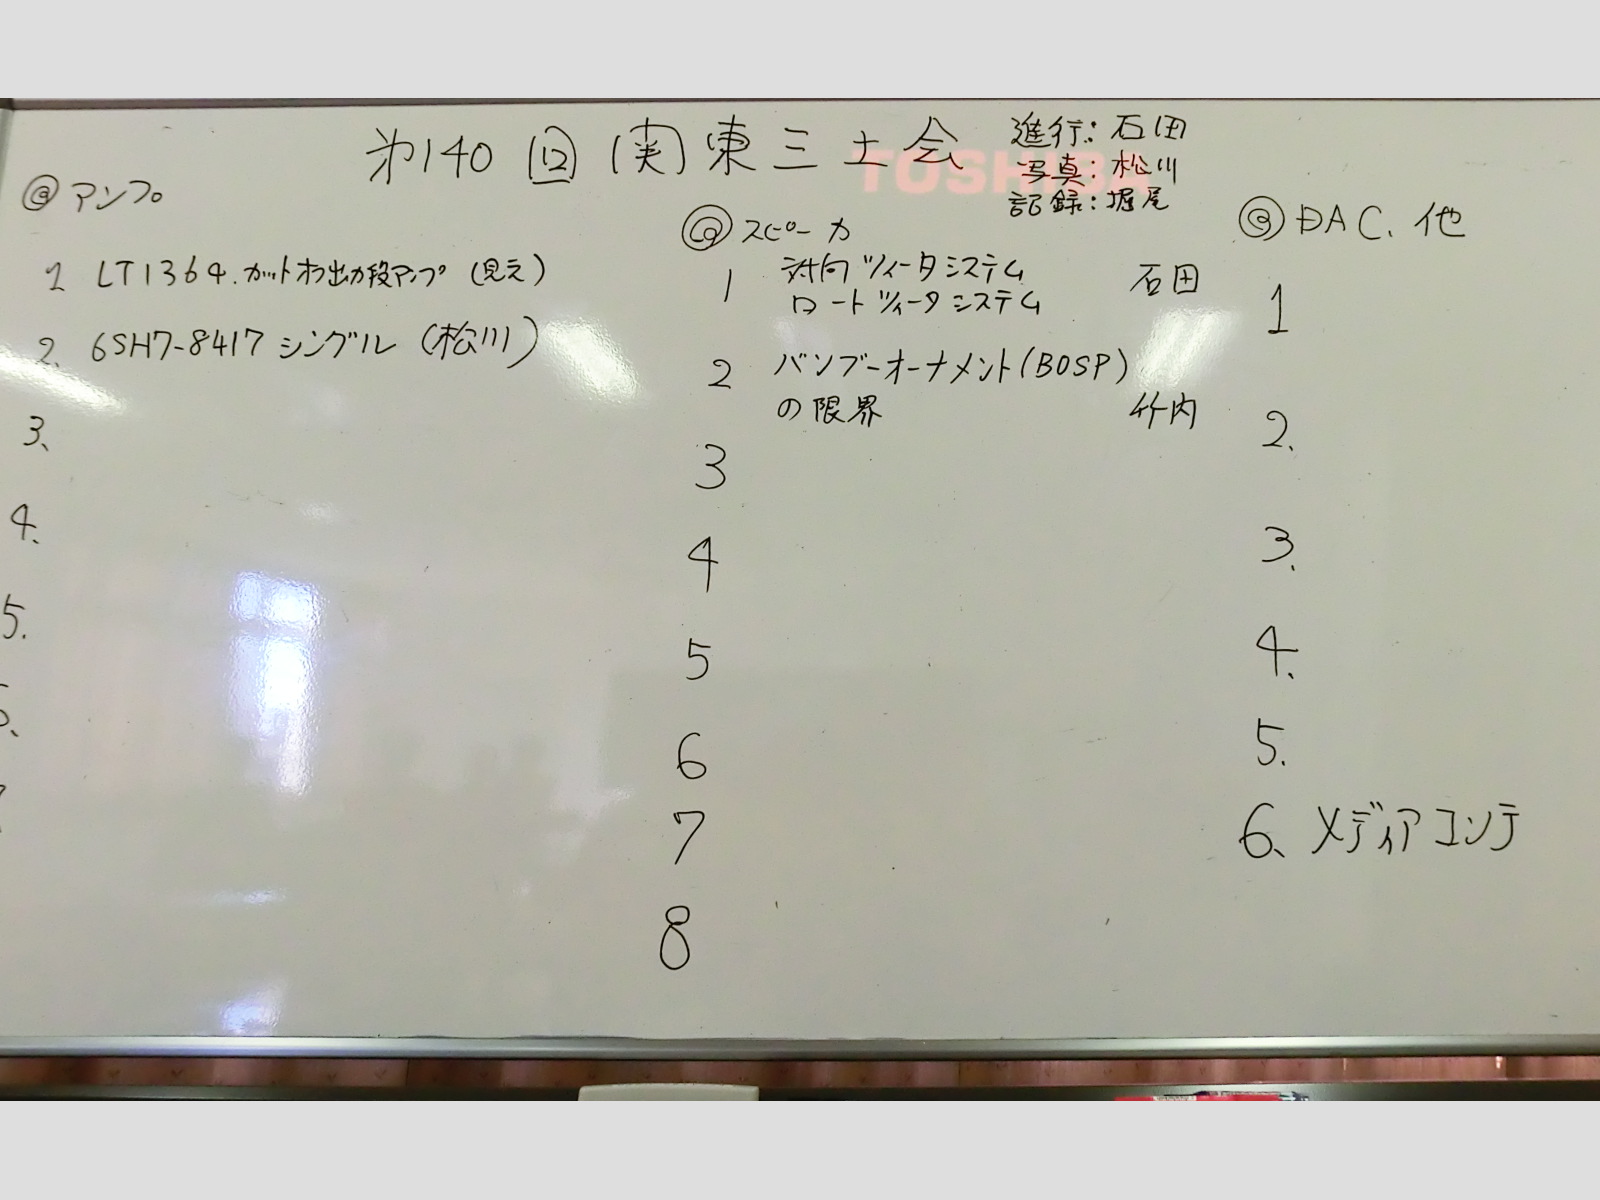 第140回 関東三土会
TOSHIBA
進行: 石田
写真: 松川
記録: 堀尾
◎ アンプ
1 LT1364.カットオフ出力段アンプ (見え)
2. 6SH7-8417 シングル (松川)
3、
4.
5.
◎ スピーカ
1 対向ツィータシステム 石田
ロートツィータシステム
2 バンブーオーナメント(BOSP)
の限界 竹内
3
4
5
6
7
8
◎ DAC、他
1
2.
3.
4.
5.
6、メディアコンテ